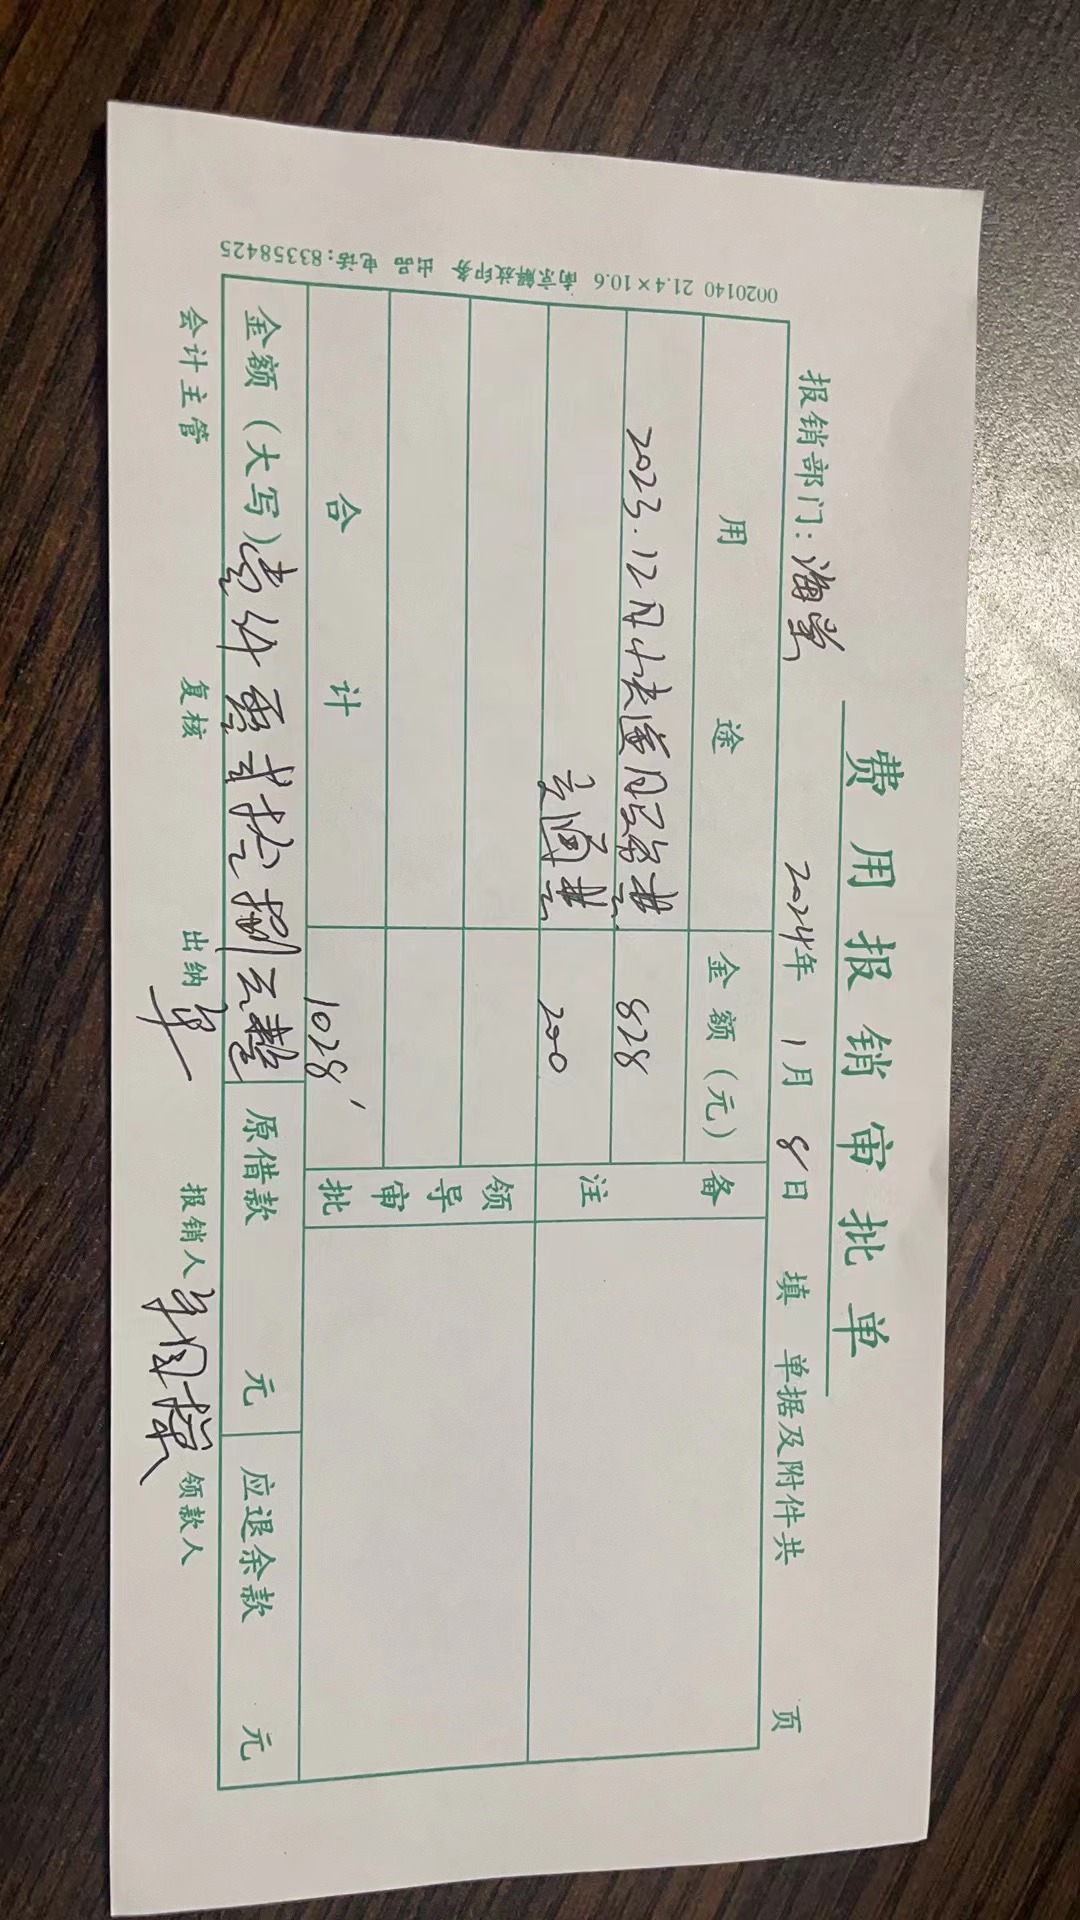 费用报销审批单
报销部门：海棠 2024年 1月 8日 填 单据及附件共 页
用途 金额（元） 备注
2023.12月 费 828
交通费 200
领导审批
合计 1028
金额（大写）壹仟零贰拾捌元整 原借款 元 应退余款 元
会计主管 复核 出纳 报销人 领款人
0020140 21.4×10.6 南京解放印务 出品 电话：83358425